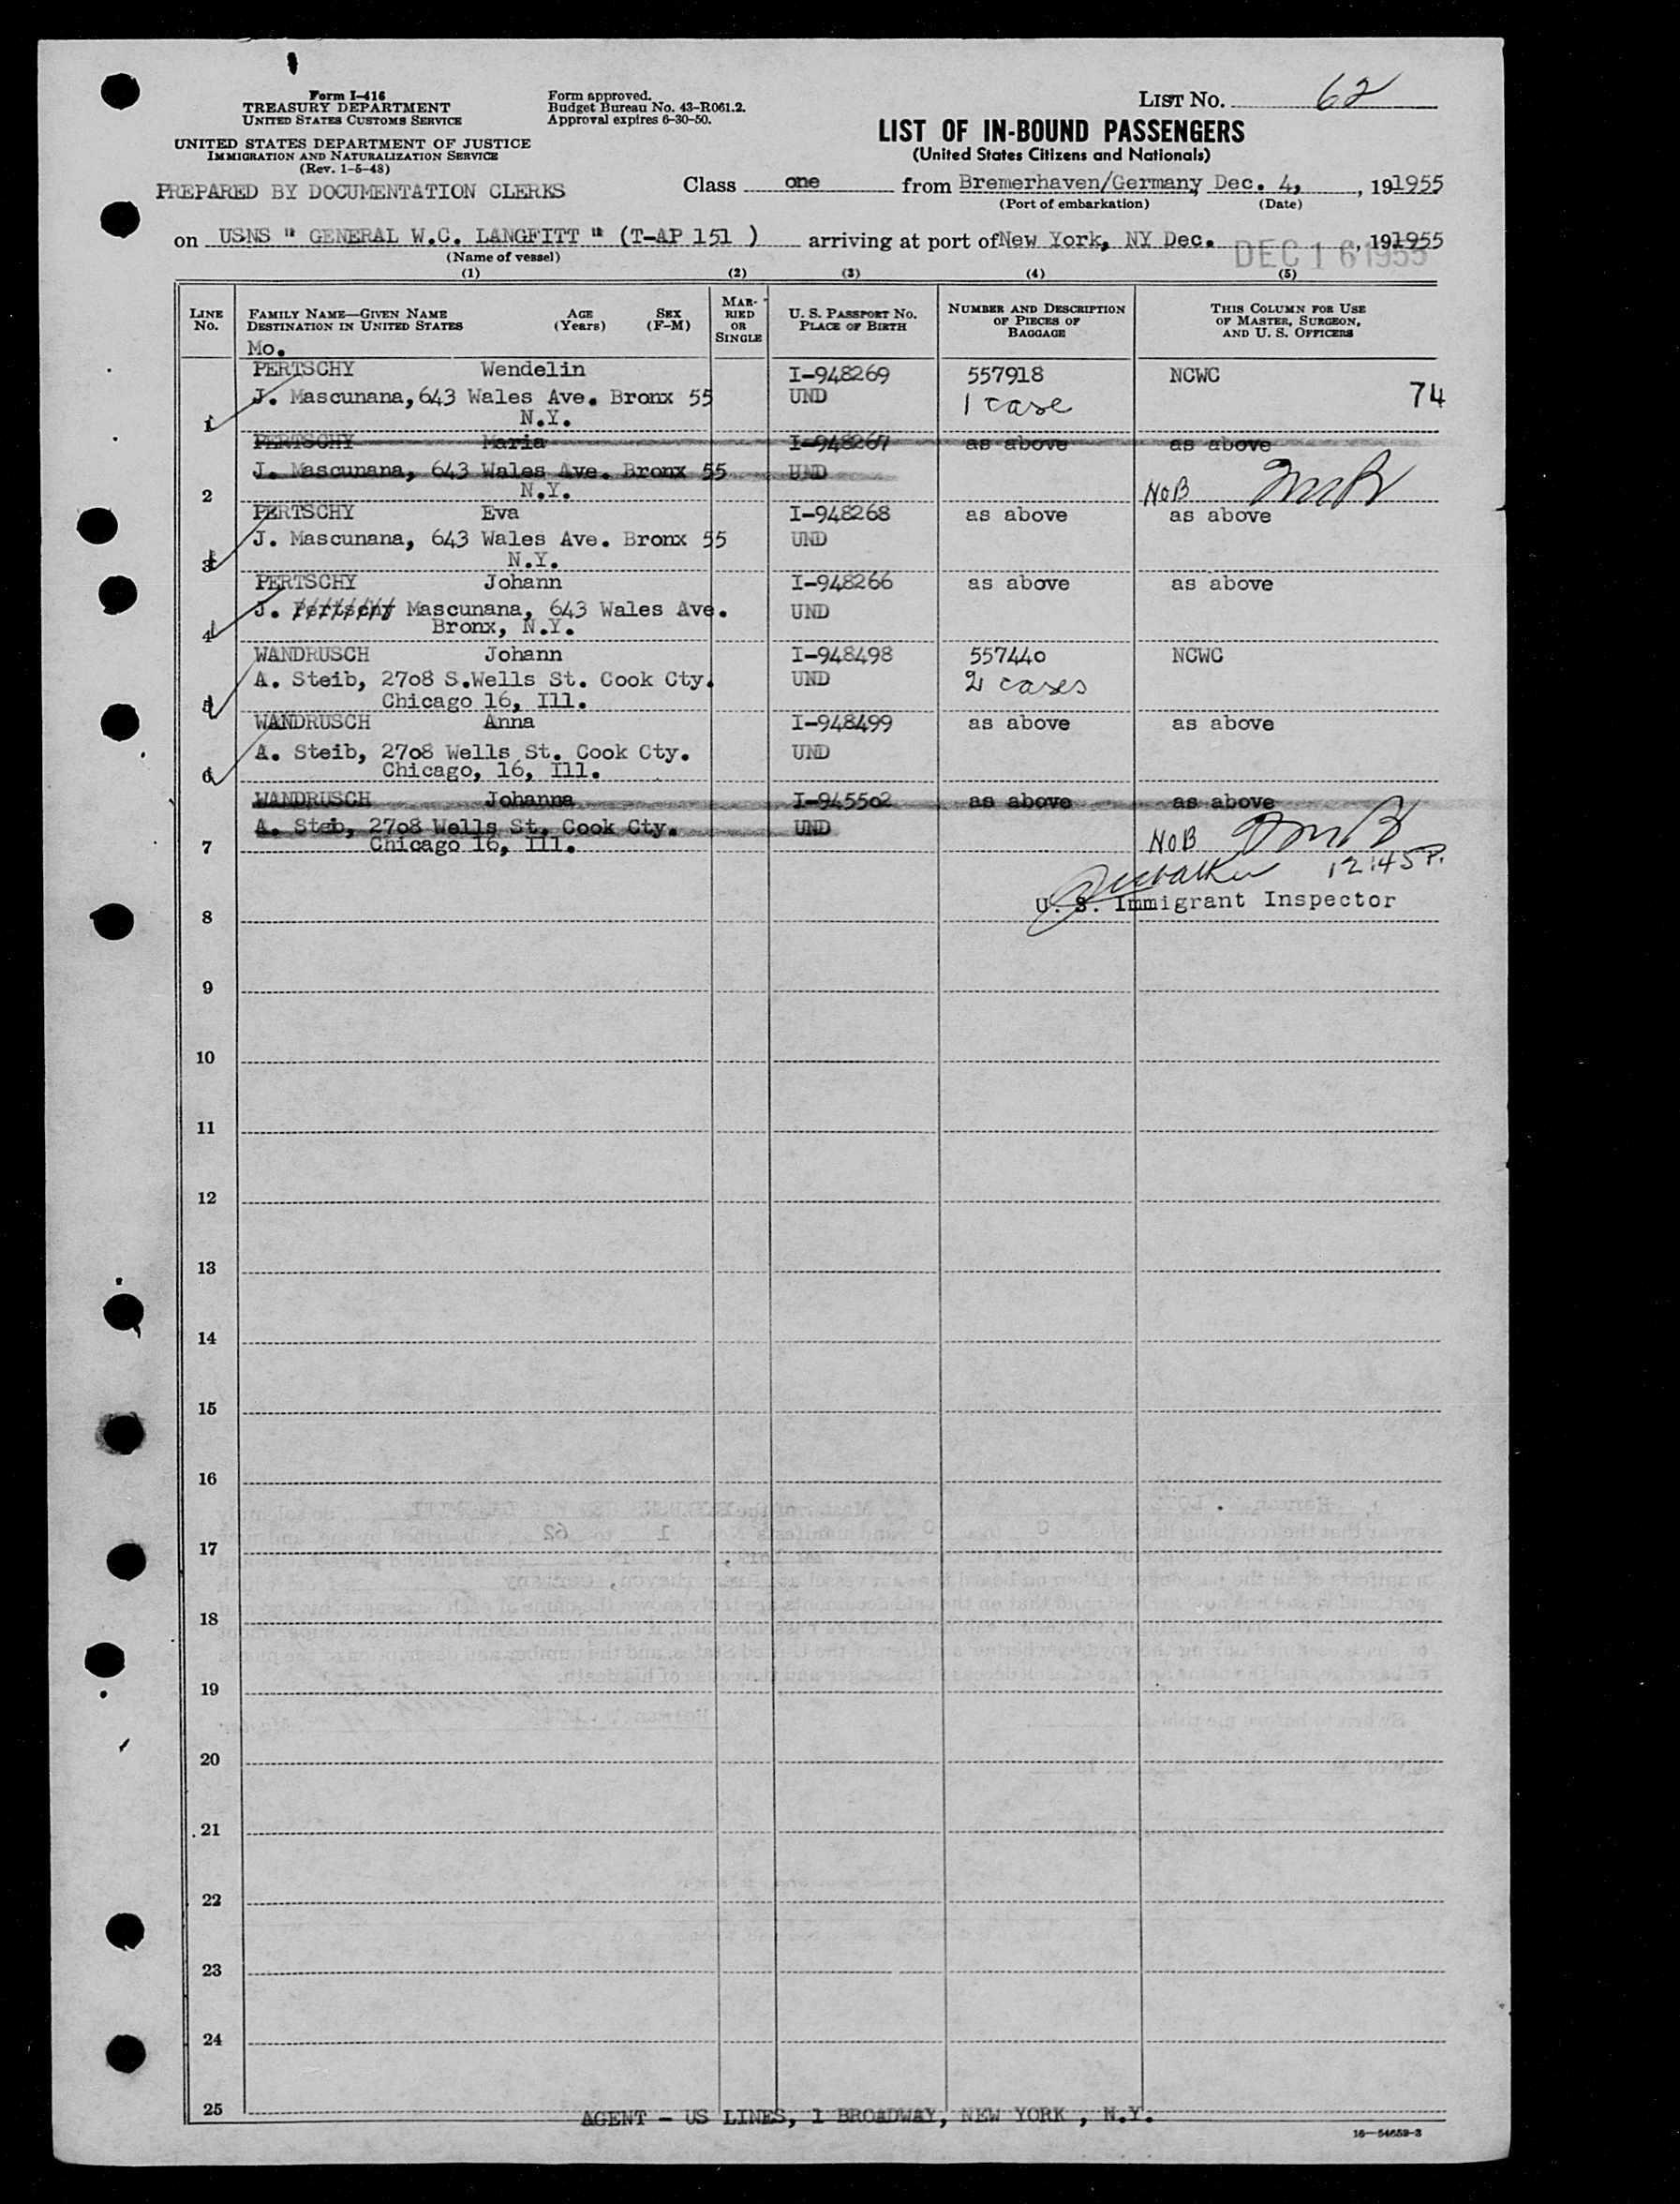 Form I-416
TREASURY DEPARTMENT
UNITED STATES CUSTOMS SERVICE
UNITED STATES DEPARTMENT OF JUSTICE
IMMIGRATION AND NATURALIZATION SERVICE
(Rev. 1-5-48)
PREPARED BY DOCUMENTATION CLERKS
Form approved.
Budget Bureau No. 43-R061.2.
Approval expires 6-30-50.
LIST No. 62
LIST OF IN-BOUND PASSENGERS
(United States Citizens and Nationals)
Class one from Bremerhaven/Germany Dec. 4, , 191955
(Port of embarkation) (Date)
on USNS " GENERAL W.C. LANGFITT " (T-AP 151 ) arriving at port of New York, NY Dec. , 191955
DEC 16 1955
(Name of vessel)
(1) (2) (3) (4) (5)
LINE No. FAMILY NAME—GIVEN NAME DESTINATION IN UNITED STATES AGE (Years) SEX (F-M) MARRIED OR SINGLE U. S. PASSPORT No. PLACE OF BIRTH NUMBER AND DESCRIPTION OF PIECES OF BAGGAGE THIS COLUMN FOR USE OF MASTER, SURGEON, AND U. S. OFFICERS
Mo.
PERTSCHY Wendelin I-948269 557918 NCWC
J. Mascunana, 643 Wales Ave. Bronx 55 UND 1 case 74
1 N.Y.
PERTSCHY Maria I-948267 as above as above
J. Mascunana, 643 Wales Ave. Bronx 55 UND
2 N.Y. NOB
PERTSCHY Eva I-948268 as above as above
J. Mascunana, 643 Wales Ave. Bronx 55 UND
3 N.Y.
PERTSCHY Johann I-948266 as above as above
J. Pertschy Mascunana, 643 Wales Ave. UND
4 Bronx, N.Y.
WANDRUSCH Johann I-948498 557440 NCWC
A. Steib, 2708 S.Wells St. Cook Cty. UND 2 cases
5 Chicago 16, Ill.
WANDRUSCH Anna I-948499 as above as above
A. Steib, 2708 Wells St. Cook Cty. UND
6 Chicago, 16, Ill.
WANDRUSCH Johanna I-945502 as above as above
A. Steib, 2708 Wells St. Cook Cty. UND
7 Chicago 16, Ill. NOB
12:45 P.
U. S. Immigrant Inspector
8
9
10
11
12
13
14
15
16
17
18
19
20
21
22
23
24
25
AGENT - US LINES, 1 BROADWAY, NEW YORK , N.Y.
16—54652-3